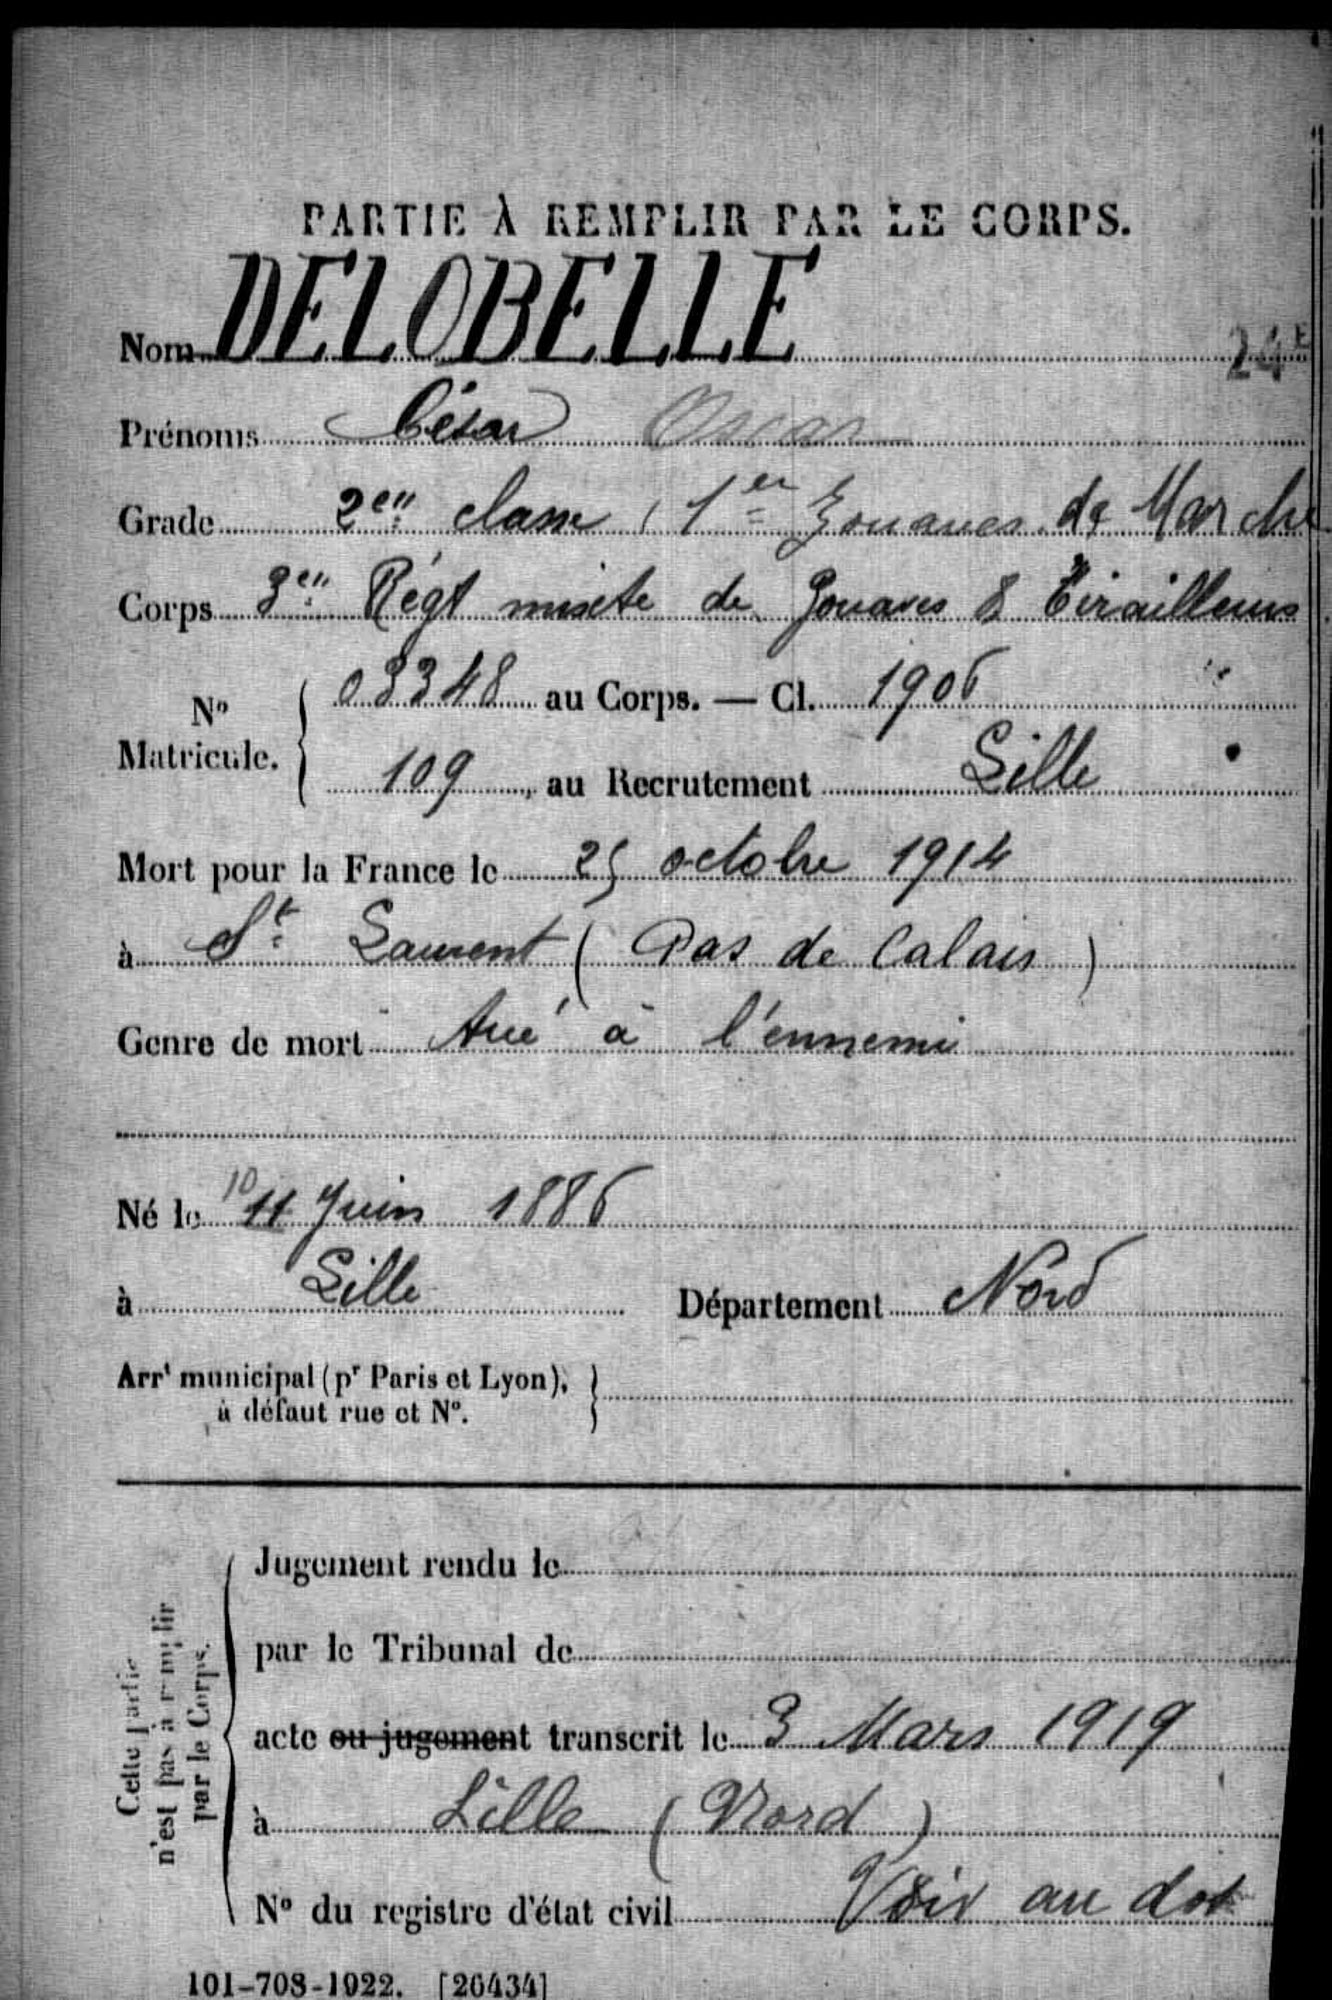 PARTIE À REMPLIR PAR LE CORPS.
Nom DELOBELLE
24E
Prénoms César Oscar
Grade 2e classe, 1er Zouaves de Marche
Corps 3e Régt mixte de Zouaves & Tirailleurs
No Matricule. { 03348 au Corps. — Cl. 1906
109 au Recrutement Lille
Mort pour la France le 25 octobre 1914
à St Laurent (Pas de Calais)
Genre de mort tué à l'ennemi
Né le 10 11 Juin 1886
à Lille Département Nord
Arrt municipal (pr Paris et Lyon), à défaut rue et No. }
Cette partie n'est pas à remplir par le Corps.
Jugement rendu le
par le Tribunal de
acte ou jugement transcrit le 3 Mars 1919
à Lille (Nord)
No du registre d'état civil Voir au dos
101-708-1922. [26434]